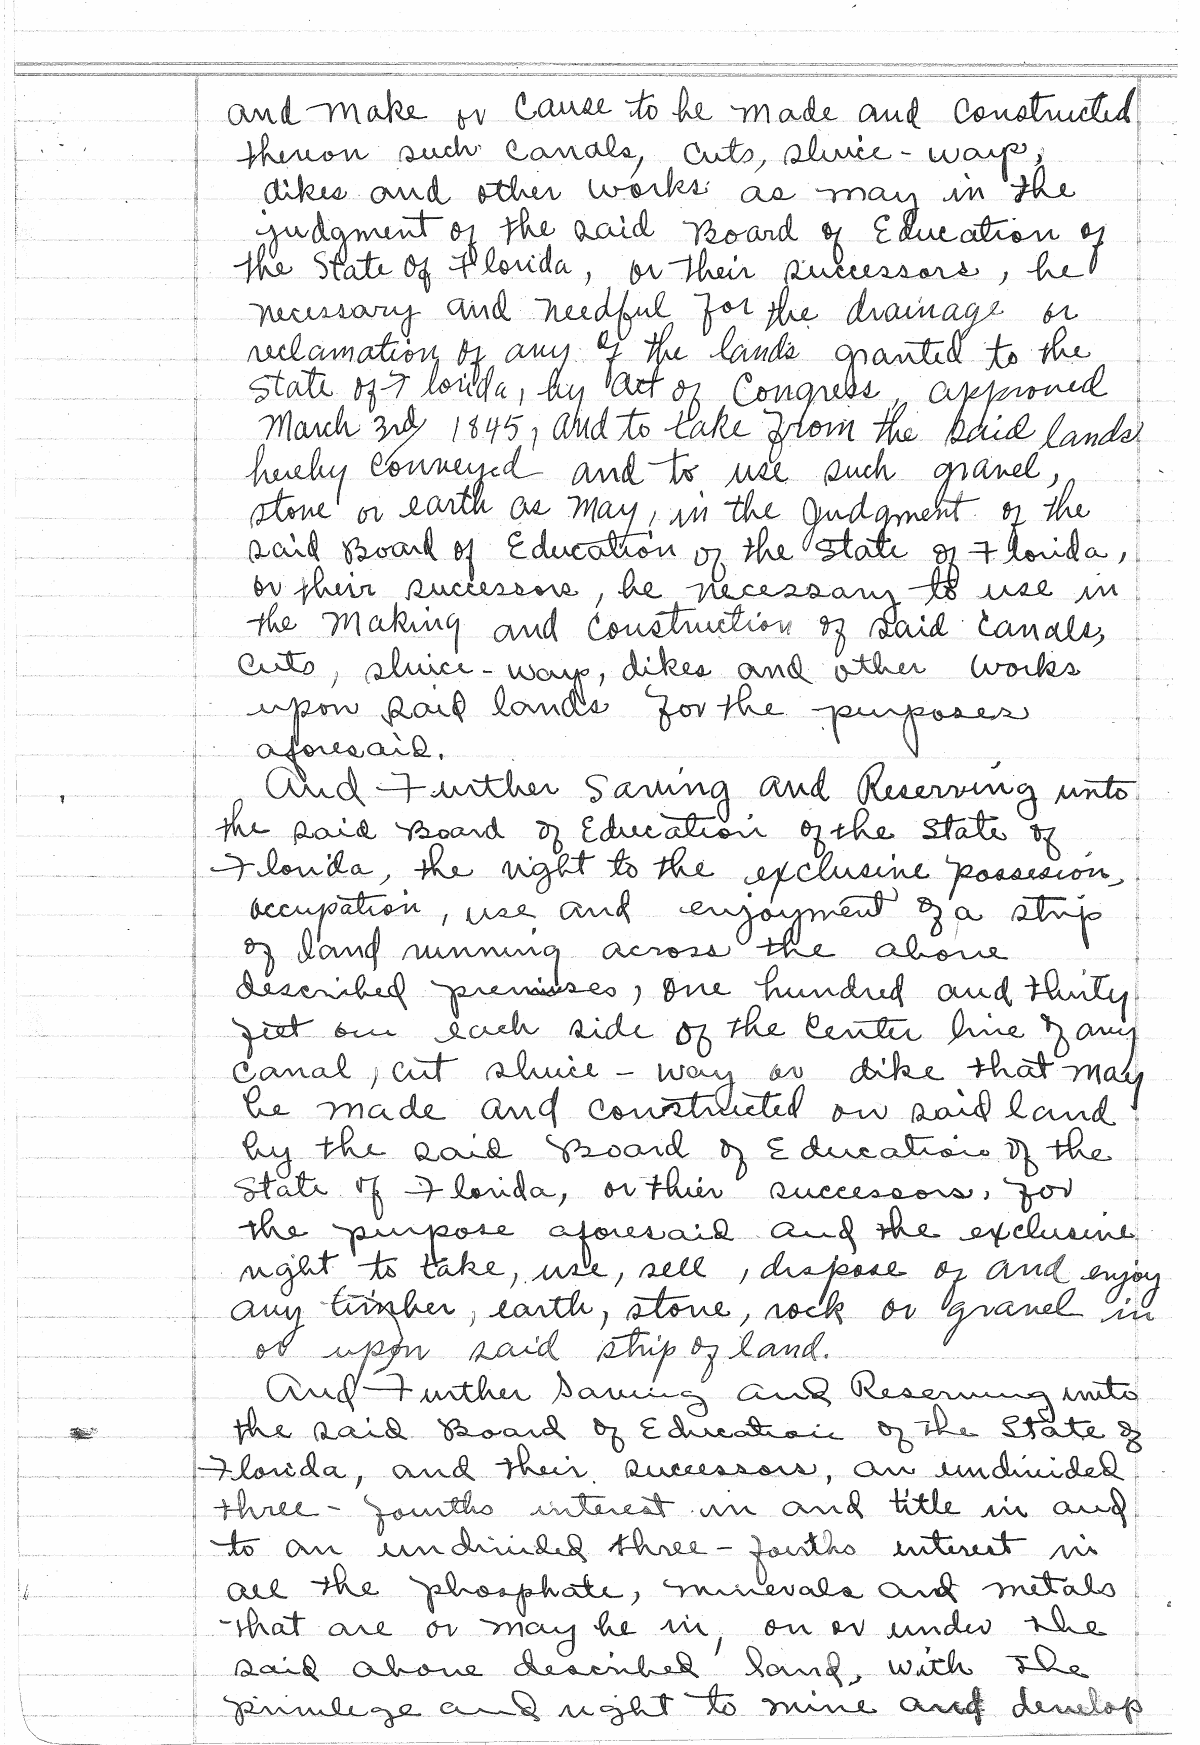 and make or cause to be made and constructed
thereon such canals, cuts, sluice-ways,
dikes and other works as may in the
judgment of the said Board of Education of
the State of Florida, or their successors, be
necessary and needful for the drainage or
reclamation of any of the lands granted to the
State of Florida, by Act of Congress, approved
March 3rd 1845, and to take from the said lands
hereby conveyed and to use such gravel,
stone or earth as may, in the Judgment of the
said Board of Education of the State of Florida,
or their successors, be necessary to use in
the making and construction of said canals,
cuts, sluice-ways, dikes and other works
upon said lands for the purposes
aforesaid.
And Further Saving and Reserving unto
the said Board of Education of the State of
Florida, the right to the exclusive possesion,
occupation, use and enjoyment of a strip
of land running across the above
described premises, one hundred and thirty
feet on each side of the center line of any
canal, cut sluice-way or dike that may
be made and constructed on said land
by the said Board of Education of the
State of Florida, or thier successors, for
the purpose aforesaid and the exclusive
right to take, use, sell, dispose of and enjoy
any timber, earth, stone, rock or gravel in
or upon said strip of land.
And Further Saving and Reserving unto
the said Board of Education of the State of
Florida, and their successors, an undivided
three-fourths interest in and title in and
to an undivided three-fouths interest in
all the phosphate, minerals and metals
that are or may be in, on or under the
said above described land, with the
privilege and right to mine and develop